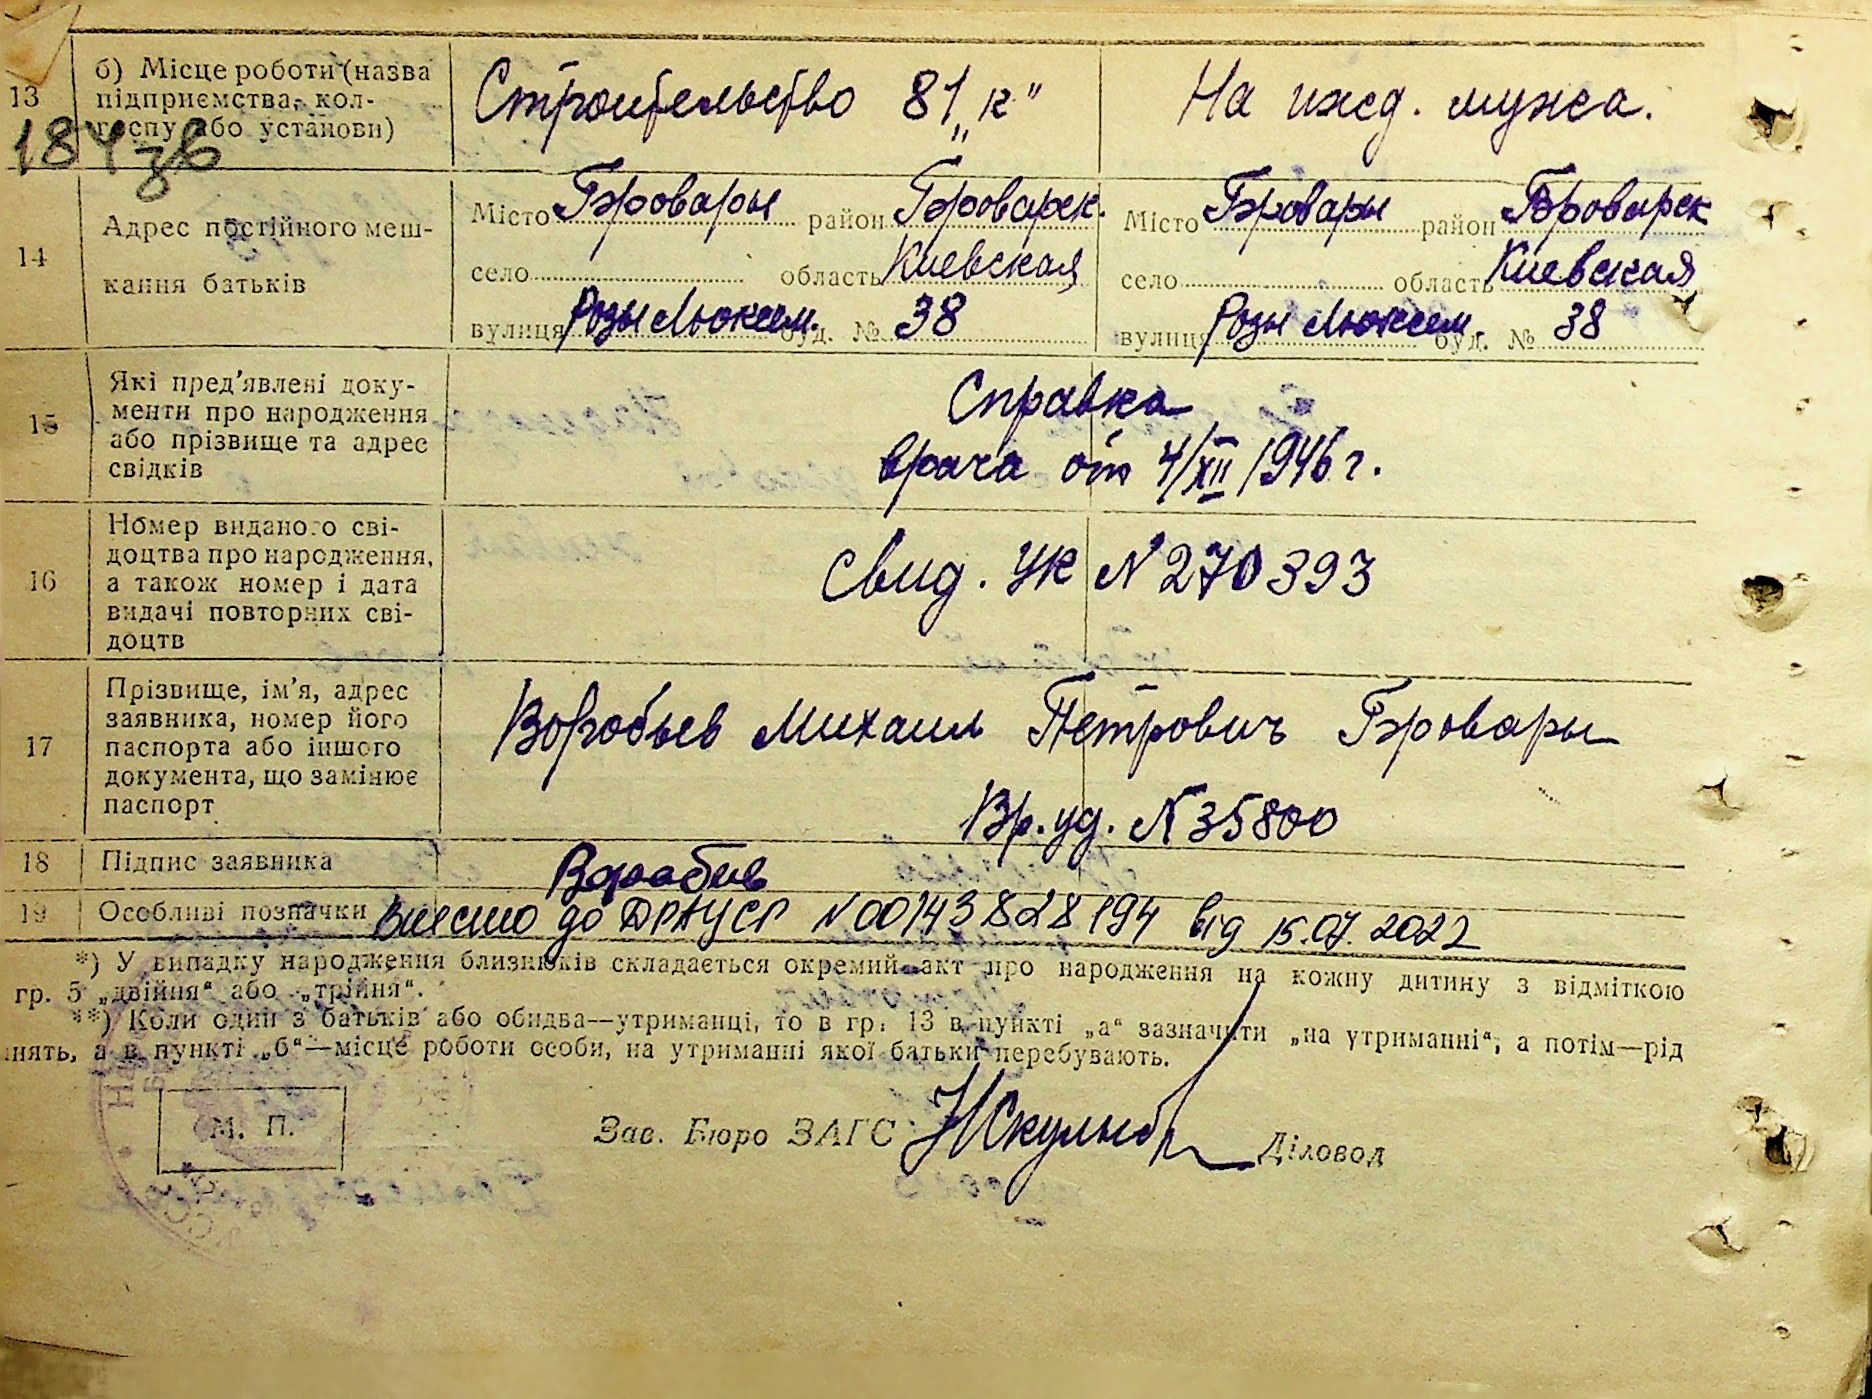 13 б) Місце роботи (назва підприємства, колгоспу або установи) Строительство 81 „к" На ижд. мужа.
184зв
14 Адрес постійного мешкання батьків
Місто Бровары район Броварск. Місто Бровары район Броварск
село область Киевская село область Киевская
вулиця Розы Люксем. буд. № 38 вулиця Розы Люксем. буд. № 38
15 Які пред'явлені документи про народження або прізвище та адрес свідків
Справка
врача от 4/XII 1946 г.
16 Номер виданого свідоцтва про народження, а також номер і дата видачі повторних свідоцтв
Свид. УК N 270393
17 Прізвище, ім'я, адрес заявника, номер його паспорта або іншого документа, що замінює паспорт
Воробьев Михаил Петрович Бровары
Вр. уд. N 35800
18 Підпис заявника Воробьев
19 Особливі позначки Внесено до ДРАЦСГ N 00143828194 від 15.07.2022
*) У випадку народження близнюків складається окремий акт про народження на кожну дитину з відміткою
гр. 5 „двійня" або „трійня".
**) Коли один з батьків або обидва—утриманці, то в гр. 13 в пункті „а" зазначити „на утриманні", а потім—рід
нять, а в пункті „б"—місце роботи особи, на утриманні якої батьки перебувають.
М. П.
Зав. Бюро ЗАГС Діловод